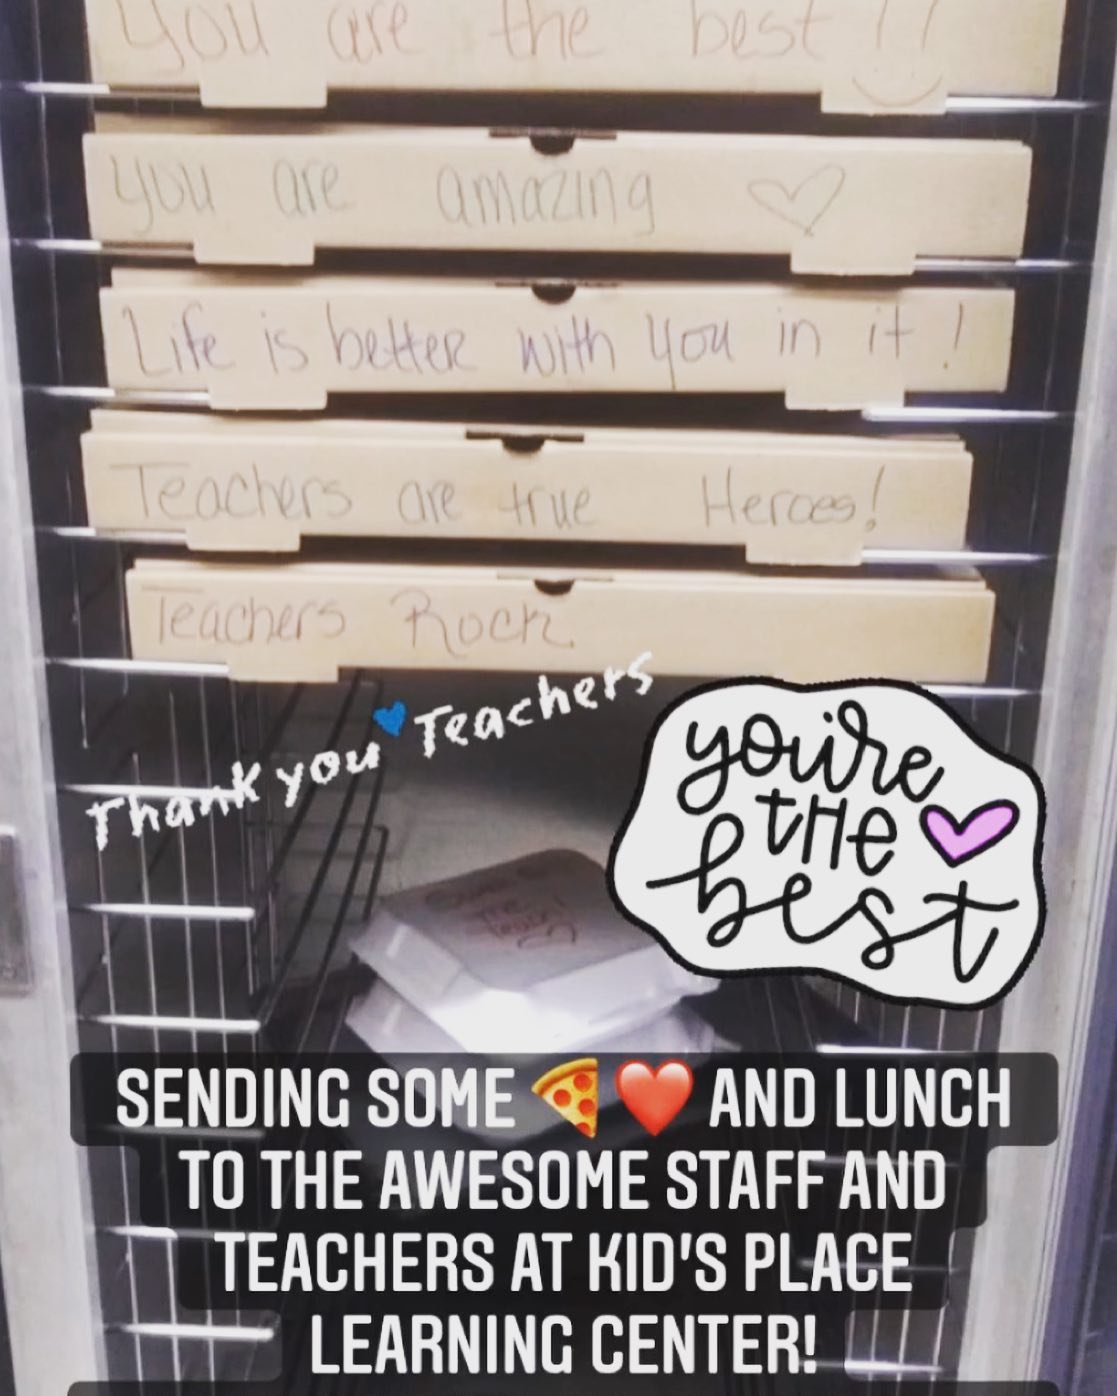 You are the best!!
You are amazing
Life is better with you in it!
Teachers are true Heroes!
Teachers Rock
Thank you Teachers
you're
the
best
SENDING SOME 🍕❤️ AND LUNCH
TO THE AWESOME STAFF AND
TEACHERS AT KID'S PLACE
LEARNING CENTER!